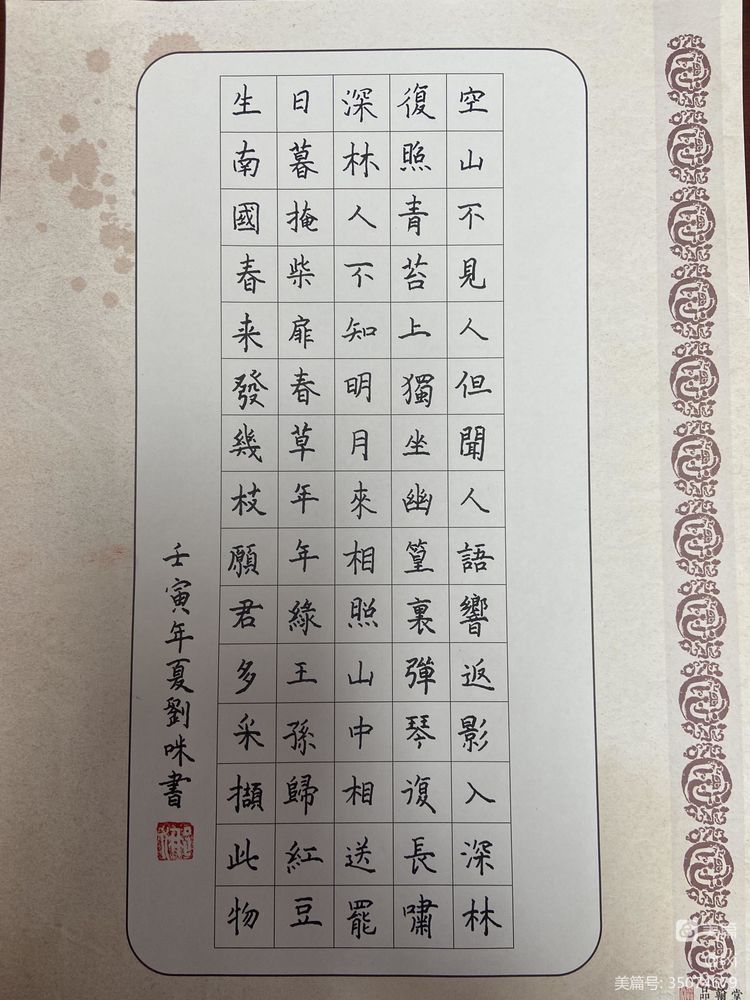 空山不見人但聞人語響返影入深林
復照青苔上獨坐幽篁裏彈琴復長嘯
深林人不知明月來相照山中相送罷
日暮掩柴扉春草年年綠王孫歸紅豆
生南國春来發幾枝願君多采擷此物
壬寅年夏劉咪書
美篇
美篇号: 35074679